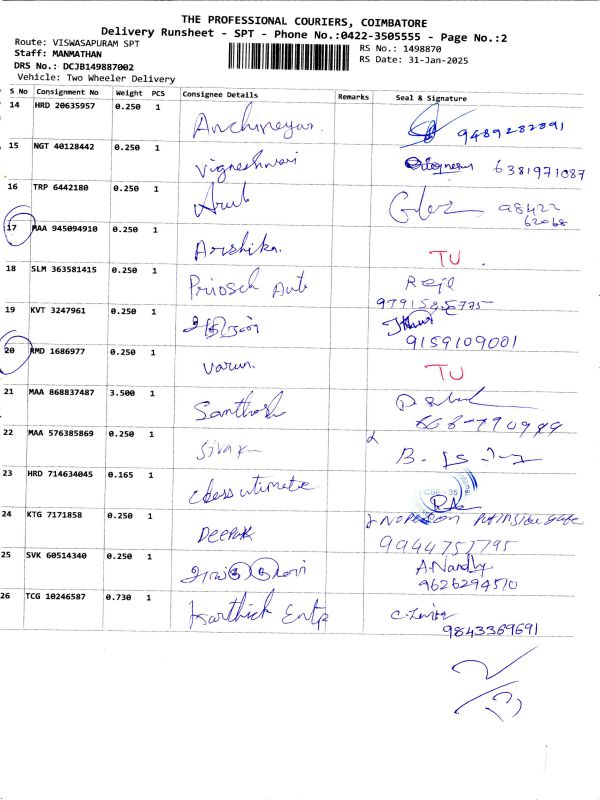 THE PROFESSIONAL COURIERS, COIMBATORE
Delivery Runsheet - SPT - Phone No.:0422-3505555 - Page No.:2
Route: VISWASAPURAM SPT
Staff: MANMATHAN
DRS No.: DCJB149887002
Vehicle: Two Wheeler Delivery
RS No.: 1498870
RS Date: 31-Jan-2025
S No Consignment No Weight PCS Consignee Details Remarks Seal & Signature
14 HRD 20635957 0.250 1 9489282891
15 NGT 40128442 0.250 1 Vigneshwari 6381971087
16 TRP 6442180 0.250 1 Arul 98422
62068
17 MAA 945094910 0.250 1 Arishika. TU
18 SLM 363581415 0.250 1 Auto
19 KVT 3247961 0.250 1 9159109001
20 RMD 1686977 0.250 1 Varun. TU
21 MAA 868837487 3.500 1 Santhosh
22 MAA 576385869 0.250 1
23 HRD 714634045 0.165 1
24 KTG 7171858 0.250 1 DEEPAK
9944757795
25 SVK 60514340 0.250 1 A.Nandhy
9626294570
26 TCG 10246587 0.730 1 Karthick Entp
9843369691